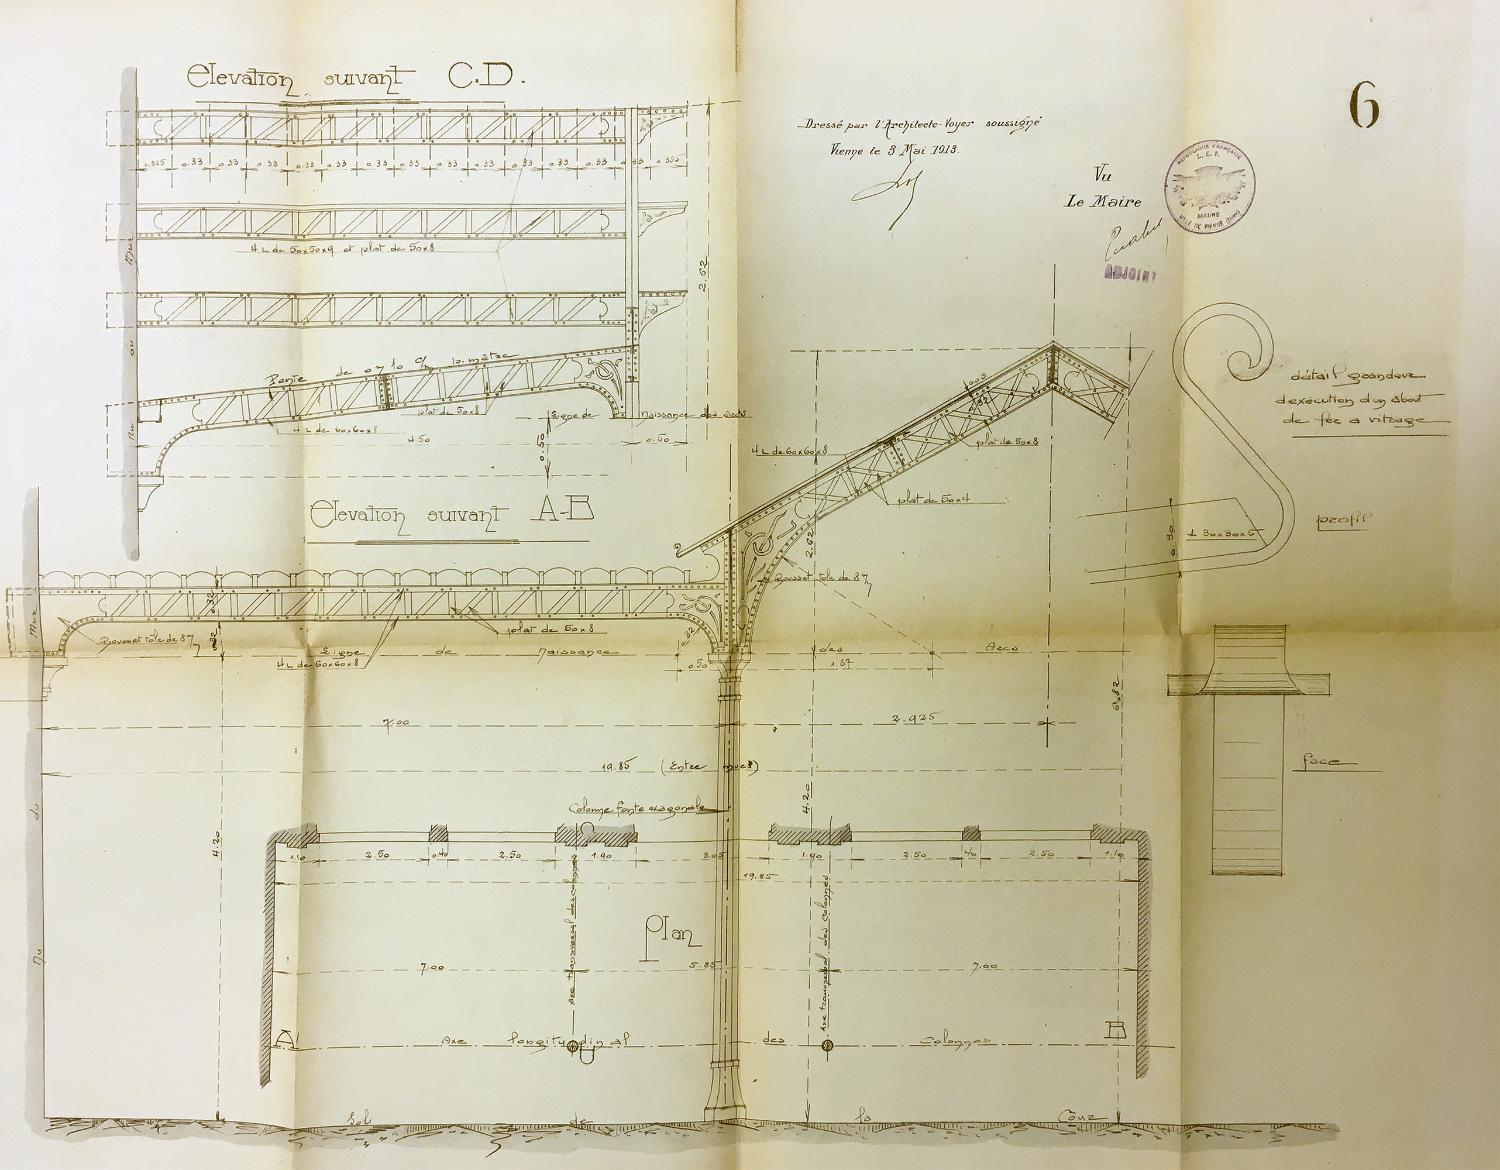 Elevation suivant C.D.
6
Dressé par l'Architecte-Voyer soussigné
Vienne le 3 Mai 1913.
Vu
Le Maire
REPUBLIQUE FRANÇAISE
MAIRIE
ADJOINT
0.355 0.33 0.33 0.33 0.33 0.33 0.33 0.33 0.33 0.33 0.33 0.33 0.33 0.355
4 L de 50x50x9 et plat de 50x8
2.62
Mur
Pente de 0 10 p. mètre
plat de 50x8
4 L de 60x60x8
4.50
Ligne de Naissance des arcs
0.50
0.50
détail grandeur
d'exécution d'un about
de fer a vitrage
profil
0.30
⊥ 30x30x5
Elevation suivant A-B
4 L de 60x60x8
plat de 50x8
plat de 50x4
2.62
Gousset tôle de 8
Mur
0.32
Gousset tôle de 8
plat de 50x8
4 L de 60x60x8
Ligne de Naissance des Arcs
0.50
1.87
6.82
7.00
2.925
19.85 (Entre murs)
face
Colonne fonte exagonale
4.20
4.20
du
Nu
1.10 2.50 0.40 2.50 1.90 3.05 1.90 2.50 40 2.50 1.10
19.85
Axe transversal des colonnes
Axe transversal des colonnes
Plan
7.00
5.85
7.00
A
B
Axe longitudinal des Colonnes
Sol de la Cour